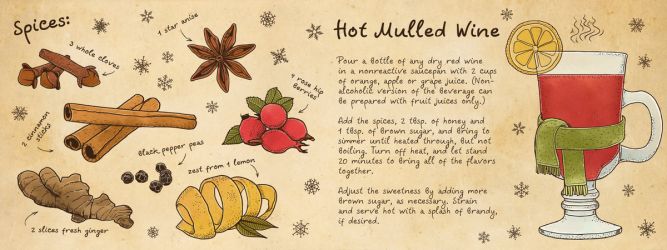 Spices:
3 whole cloves
1 star anise
4 rose hip
berries
2 cinnamon
sticks
Black pepper peas
zest from 1 lemon
2 slices fresh ginger
Hot Mulled Wine
Pour a bottle of any dry red wine
in a nonreactive saucepan with 2 cups
of orange, apple or grape juice. (Non-
alcoholic version of the beverage can
be prepared with fruit juices only.)
Add the spices, 2 tbsp. of honey and
1 tbsp. of brown sugar, and bring to
simmer until heated through, but not
boiling. Turn off heat, and let stand
20 minutes to bring all of the flavors
together.
Adjust the sweetness by adding more
brown sugar, as necessary. Strain
and serve hot with a splash of brandy,
if desired.